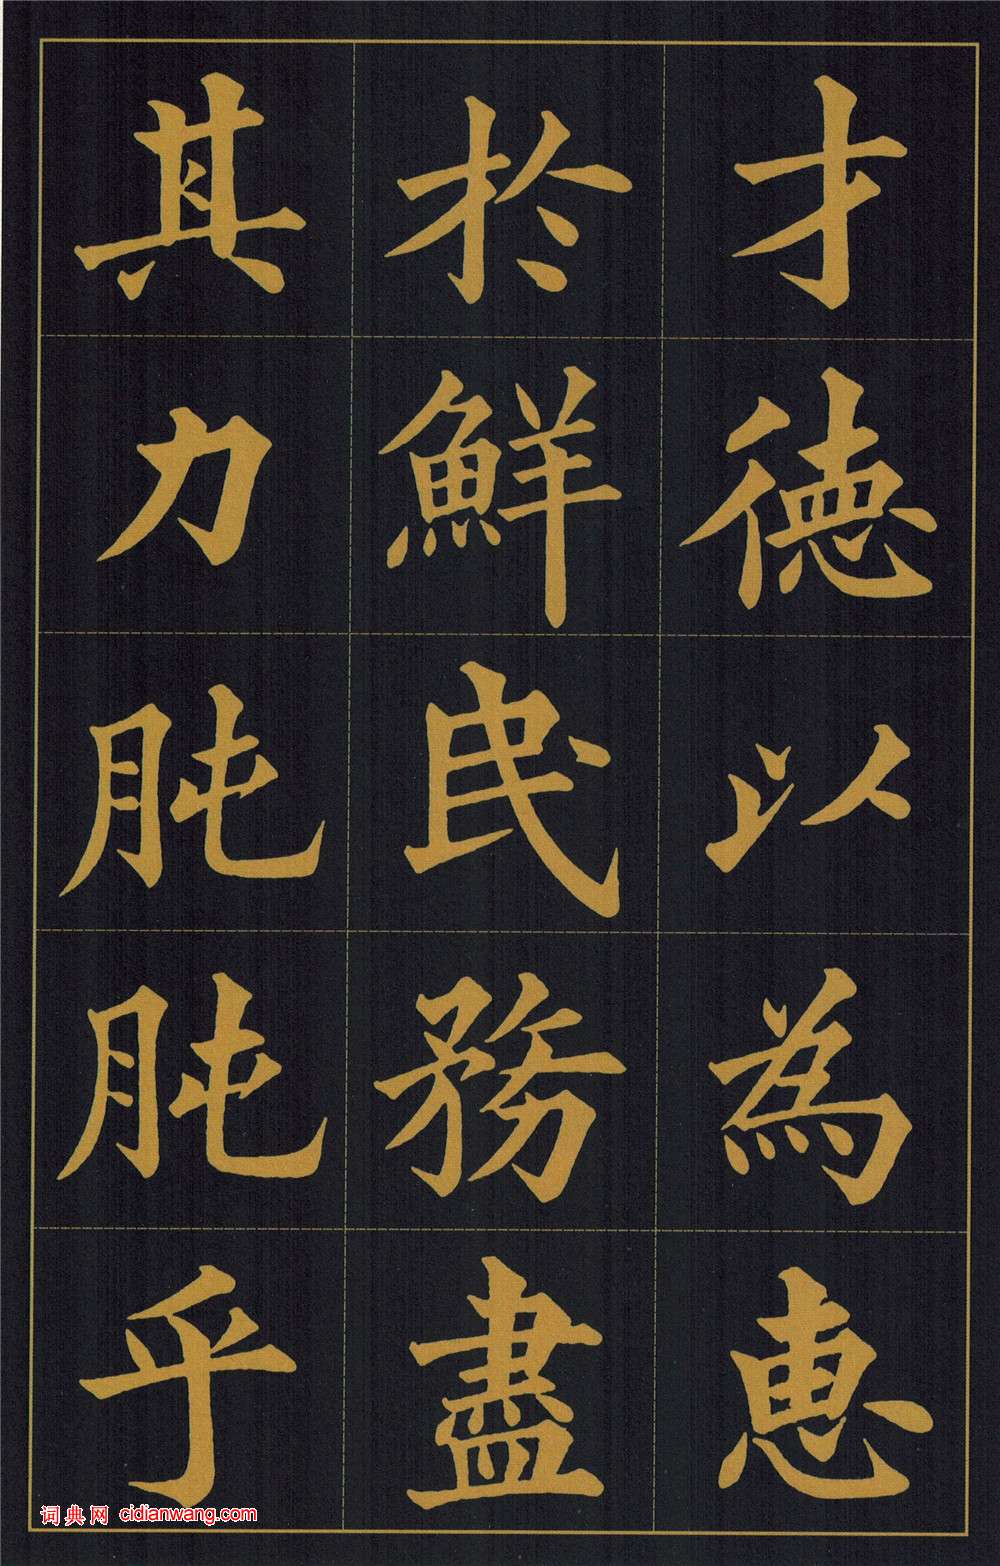 才德以為惠
於鮮民務盡
其力肫肫乎
词典网 cidianwang.com